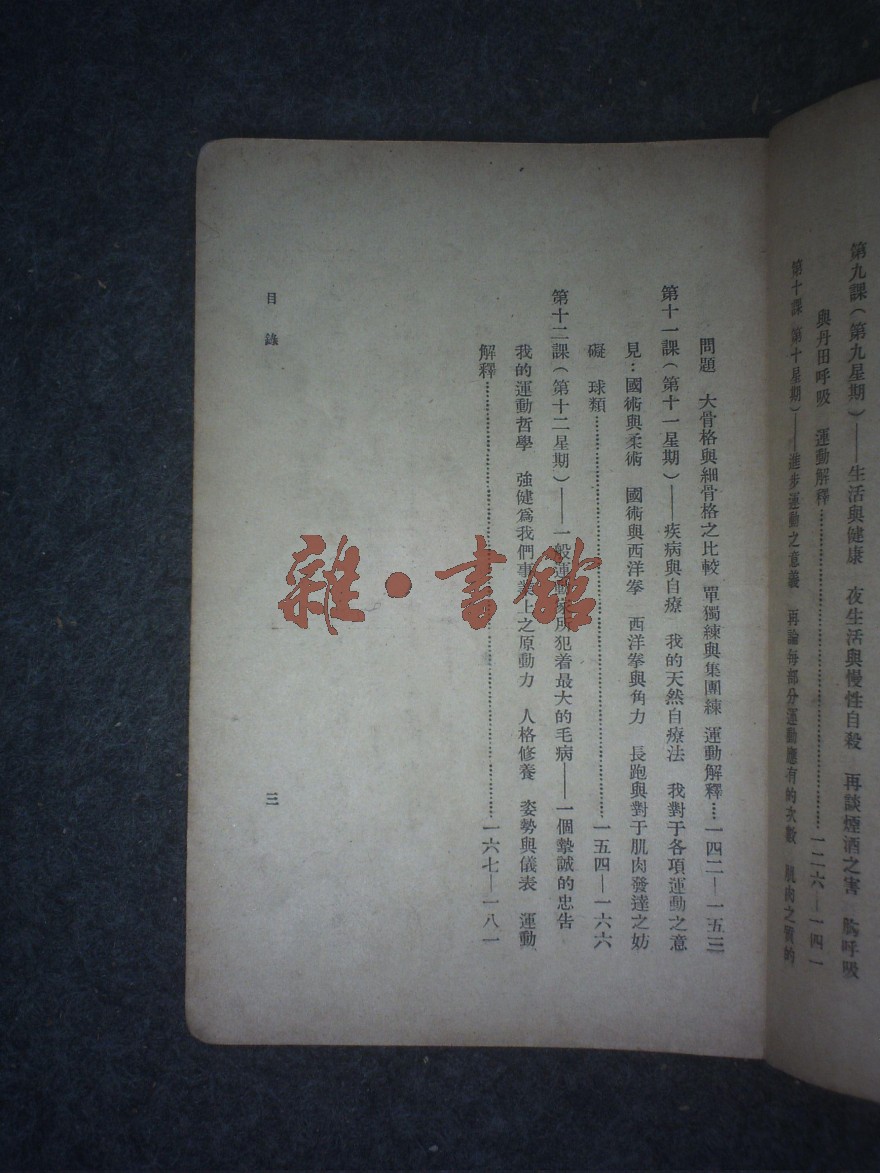 第九課(第九星期)——生活與健康　夜生活與慢性自殺　再談煙酒之害　胸呼吸
與丹田呼吸　運動解釋……一二六—一四一
第十課　第十星期)——進步運動之意義　再論每部分運動應有的次數　肌肉之質的
問題　大骨格與細骨格之比較　單獨練與集團練　運動解釋……一四二—一五三
第十一課(第十一星期)——疾病與自療　我的天然自療法　我對于各項運動之意
見：國術與柔術　國術與西洋拳　西洋拳與角力　長跑與對于肌肉發達之妨
礙　球類……一五四—一六六
第十二課(第十二星期)——一般運動家所犯着最大的毛病——一個摯誠的忠告
我的運動哲學　強健爲我們事業上之原動力　人格修養　姿勢與儀表　運動
解釋……一六七—一八一
目錄
三
雜·書館